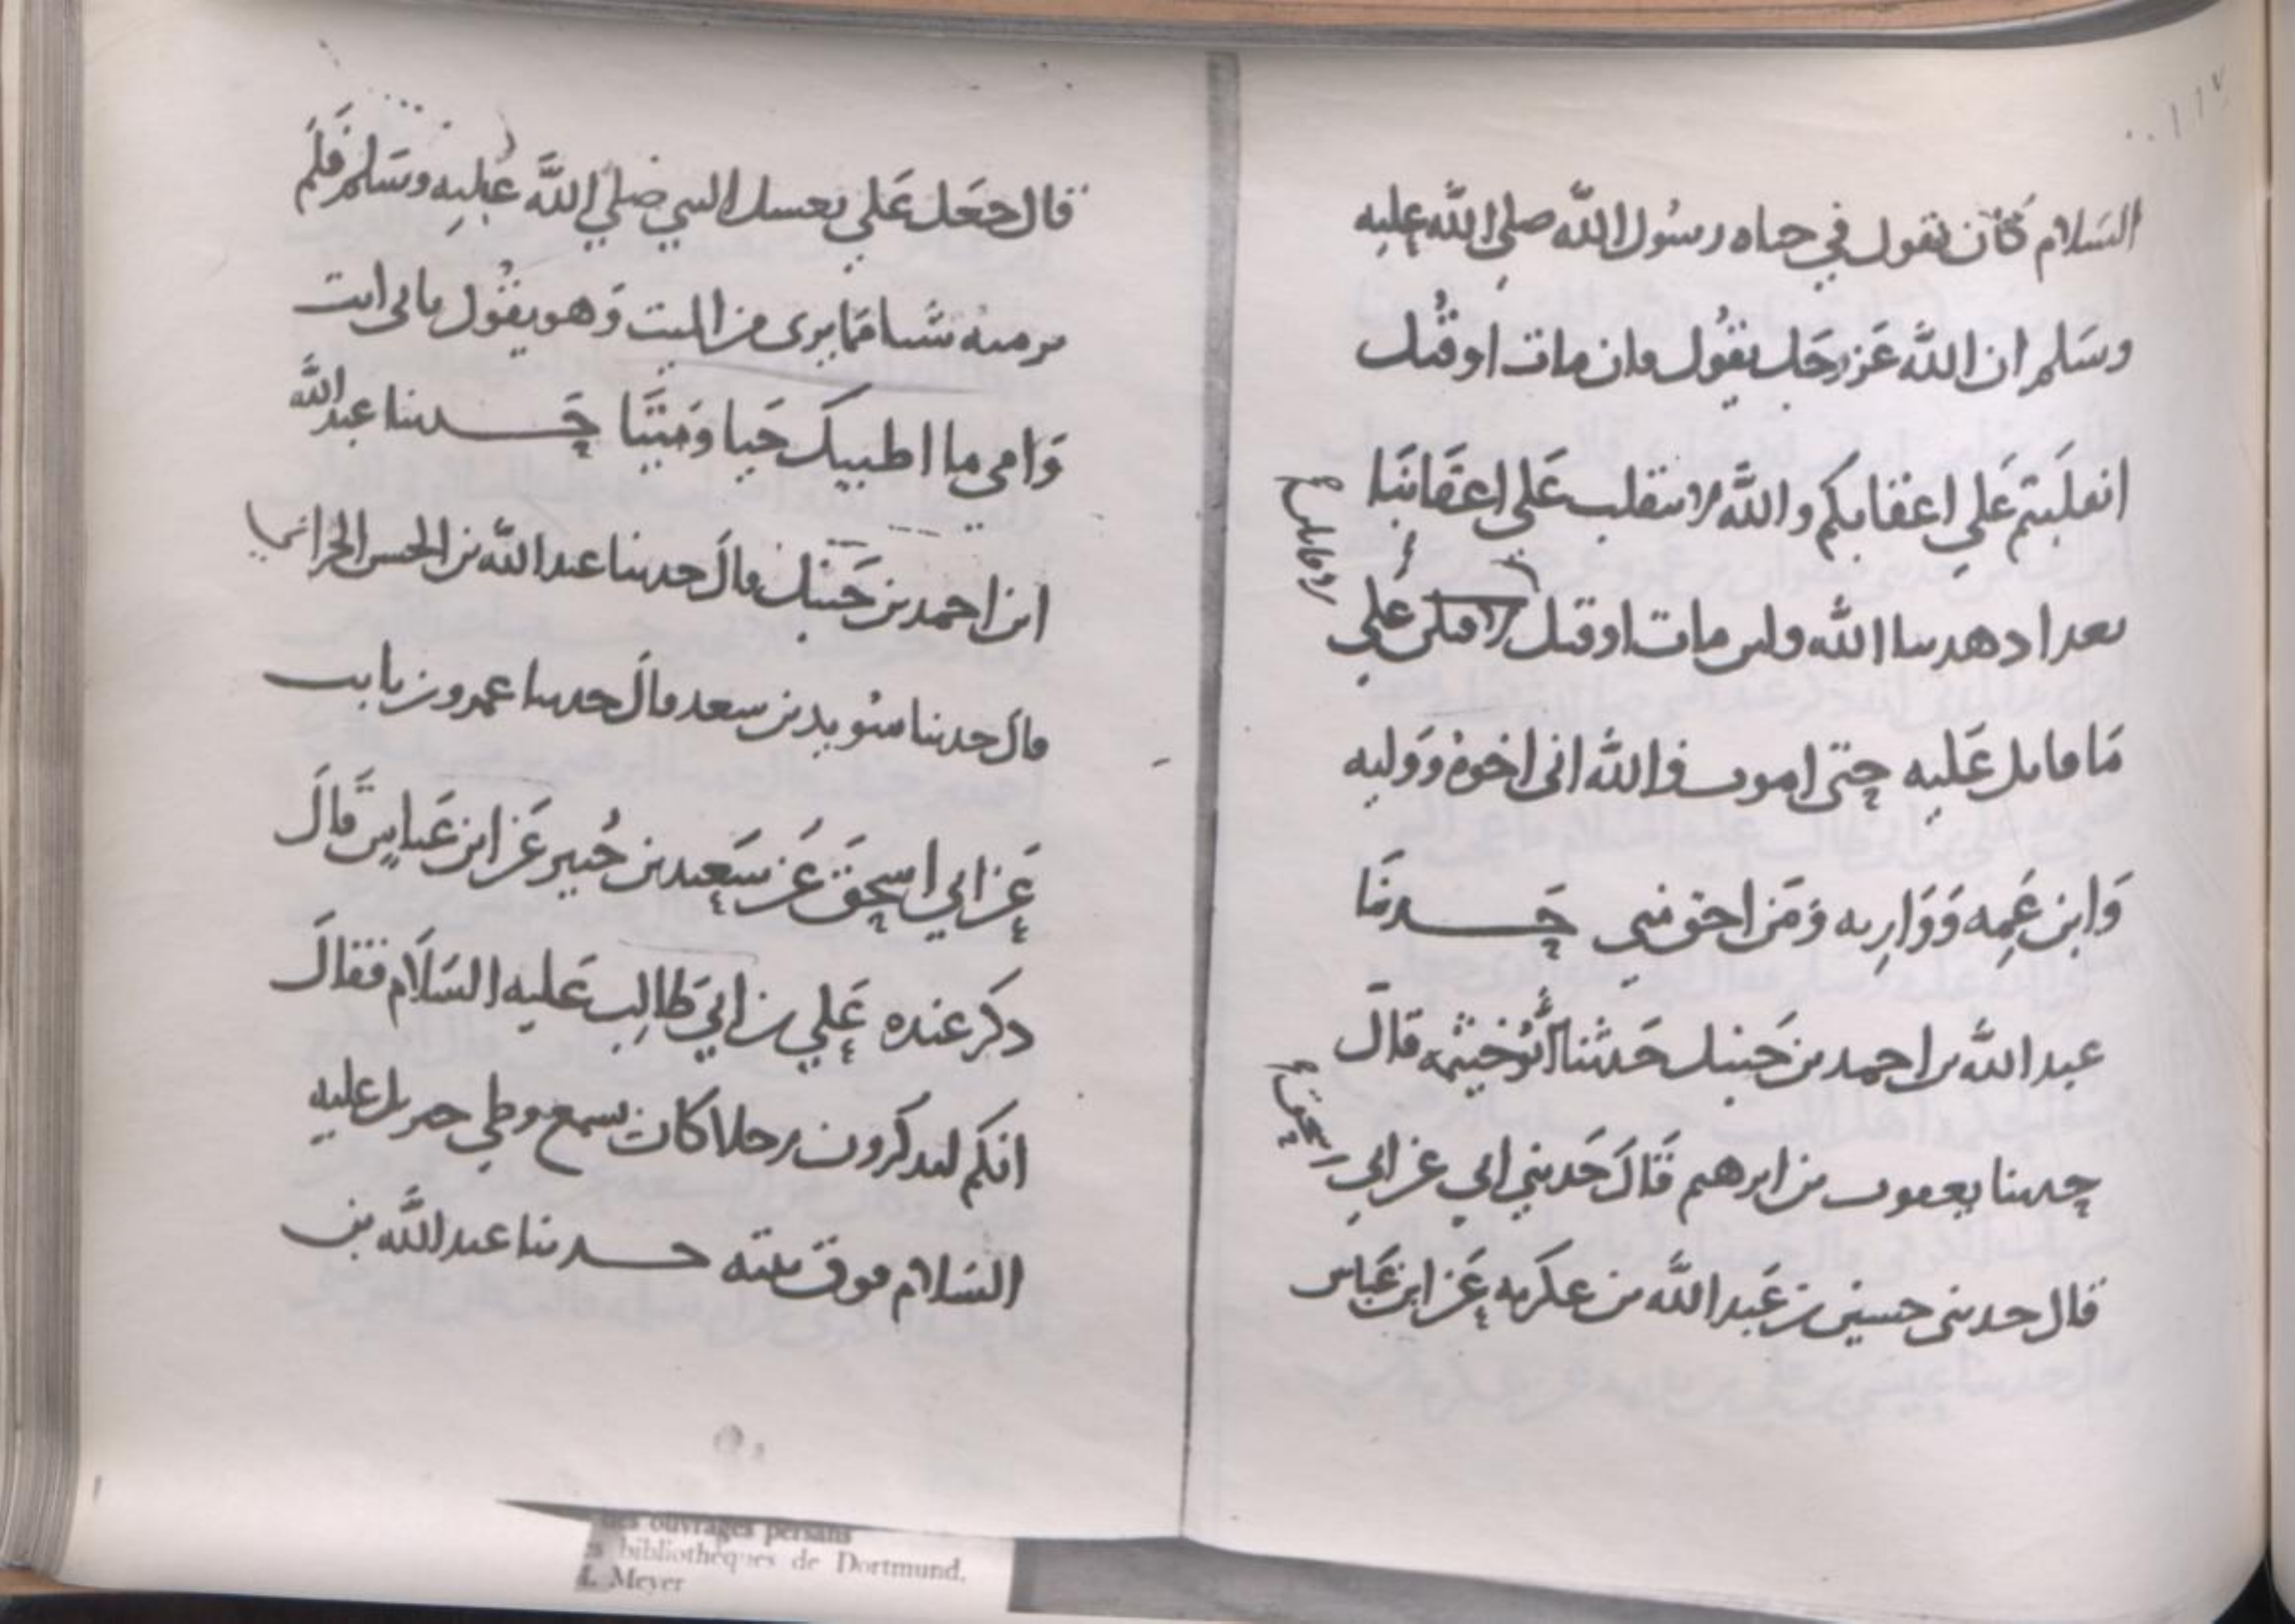 السلام كان يقول في حياه رسول الله صلي الله عليه
وسلم ان الله عز وجل يقول فان مات او قتل
انقلبتم علي اعقابكم والله لا ننقلب علي اعقابنا
بعد اذ هدينا الله ولين مات او قتل لاقاتلن علي
ما قاتل عليه حتى اموت والله اني اخوه ووليه
وابن عمه ووارثه ومن احق مني حدثنا
عبد الله بن احمد بن حنبل حدثنا ابو خيثمه قال
حدثنا يعقوب بن ابرهيم قال حدثني ابي عن ابي
اسحق
قال حدثني حسين بن عبد الله عن عكرمه عن ابن عباس
قال جعل علي يغسل النبي صلي الله عليه وسلم فلم
ير منه شيا مما يرى من الميت وهو يقول بابي انت
وامي ما اطيبك حيا وميتا حدثنا عبد الله
ابن احمد بن حنبل قال حدثنا عبد الله بن الحسن الحراني
قال حدثنا سويد بن سعيد قال حدثنا عمرو بن ثابت
عن ابي اسحق عن سعيد بن جبير عن ابن عباس قال
ذكر عنده علي بن ابي طالب عليه السلام فقال
انكم لتذكرون رجلا كان يسمع وطي جبريل عليه
السلام فوق بيته حدثنا عبد الله بن
des ouvrages persans
bibliothèques de Dortmund.
Meyer